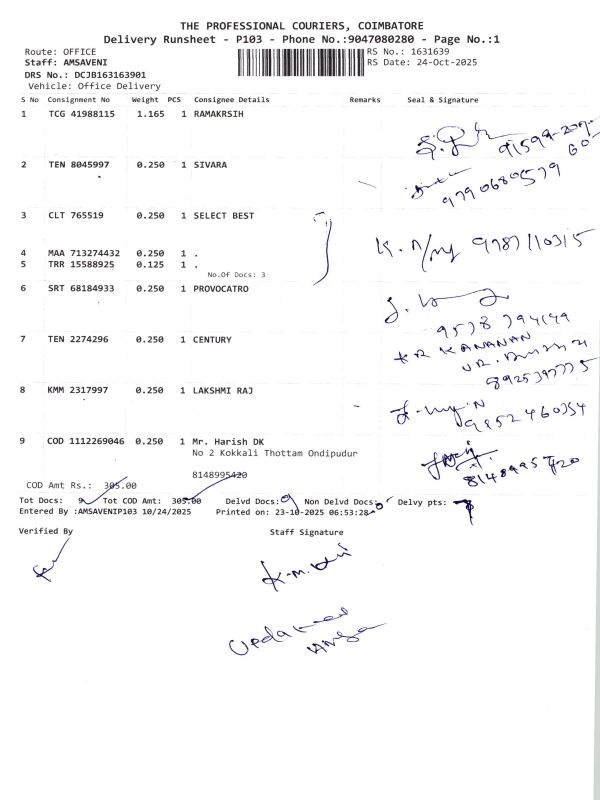 THE PROFESSIONAL COURIERS, COIMBATORE
Delivery Runsheet - P103 - Phone No.:9047080280 - Page No.:1
Route: OFFICE RS No.: 1631639
Staff: AMSAVENI RS Date: 24-Oct-2025
DRS No.: DCJB163163901
Vehicle: Office Delivery
S No Consignment No Weight PCS Consignee Details Remarks Seal & Signature
1 TCG 41988115 1.165 1 RAMAKRSIH
2 TEN 8045997 0.250 1 SIVARA
9790680579
3 CLT 765519 0.250 1 SELECT BEST
9787110315
4 MAA 713274432 0.250 1 .
5 TRR 15588925 0.125 1 .
No.Of Docs: 3
6 SRT 68184933 0.250 1 PROVOCATRO
7 TEN 2274296 0.250 1 CENTURY
8925397775
8 KMM 2317997 0.250 1 LAKSHMI RAJ
9852460354
9 COD 1112269046 0.250 1 Mr. Harish DK
No 2 Kokkali Thottam Ondipudur
8148995420 8148995420
COD Amt Rs.: 305.00
Tot Docs: 9 Tot COD Amt: 305.00 Delvd Docs: 9 Non Delvd Docs: 0 Delvy pts: 7
Entered By :AMSAVENIP103 10/24/2025 Printed on: 23-10-2025 06:53:28
Verified By Staff Signature